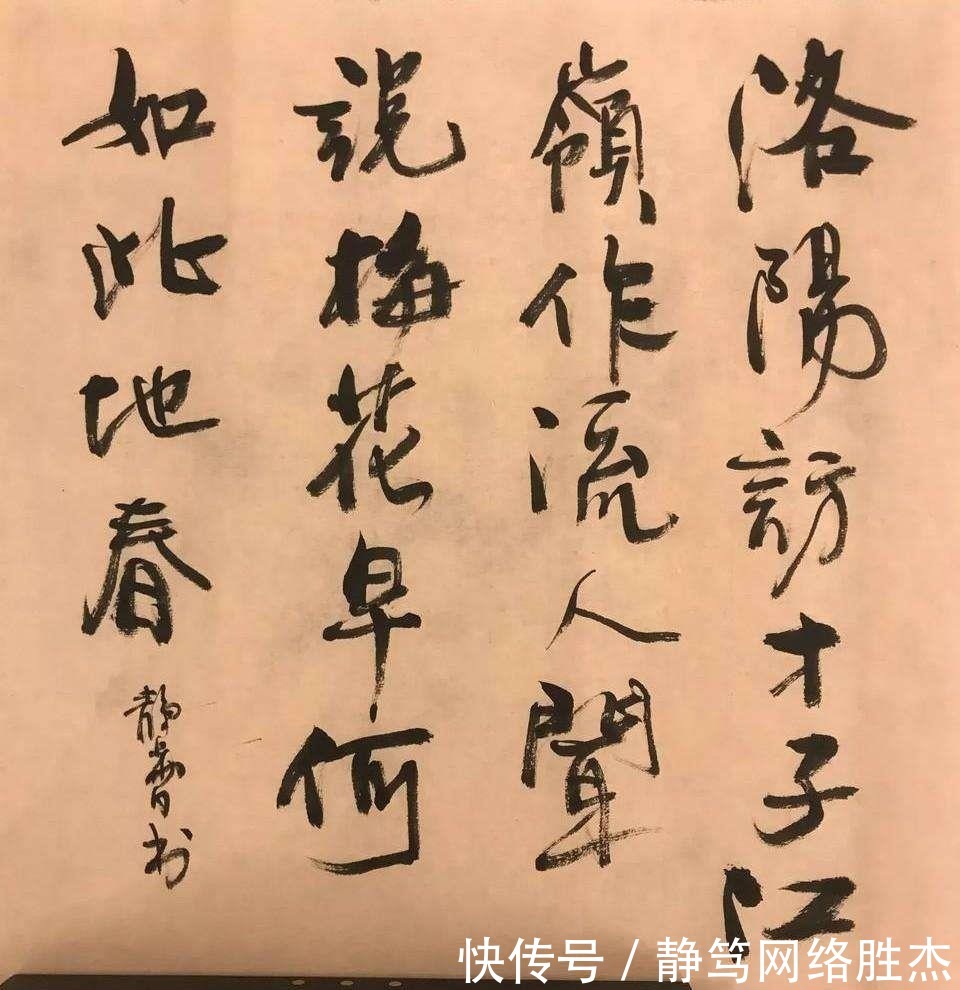 洛陽訪才子江
嶺作流人聞
説梅花早何
如此地春
静
书
快传号／静笃网络胜杰